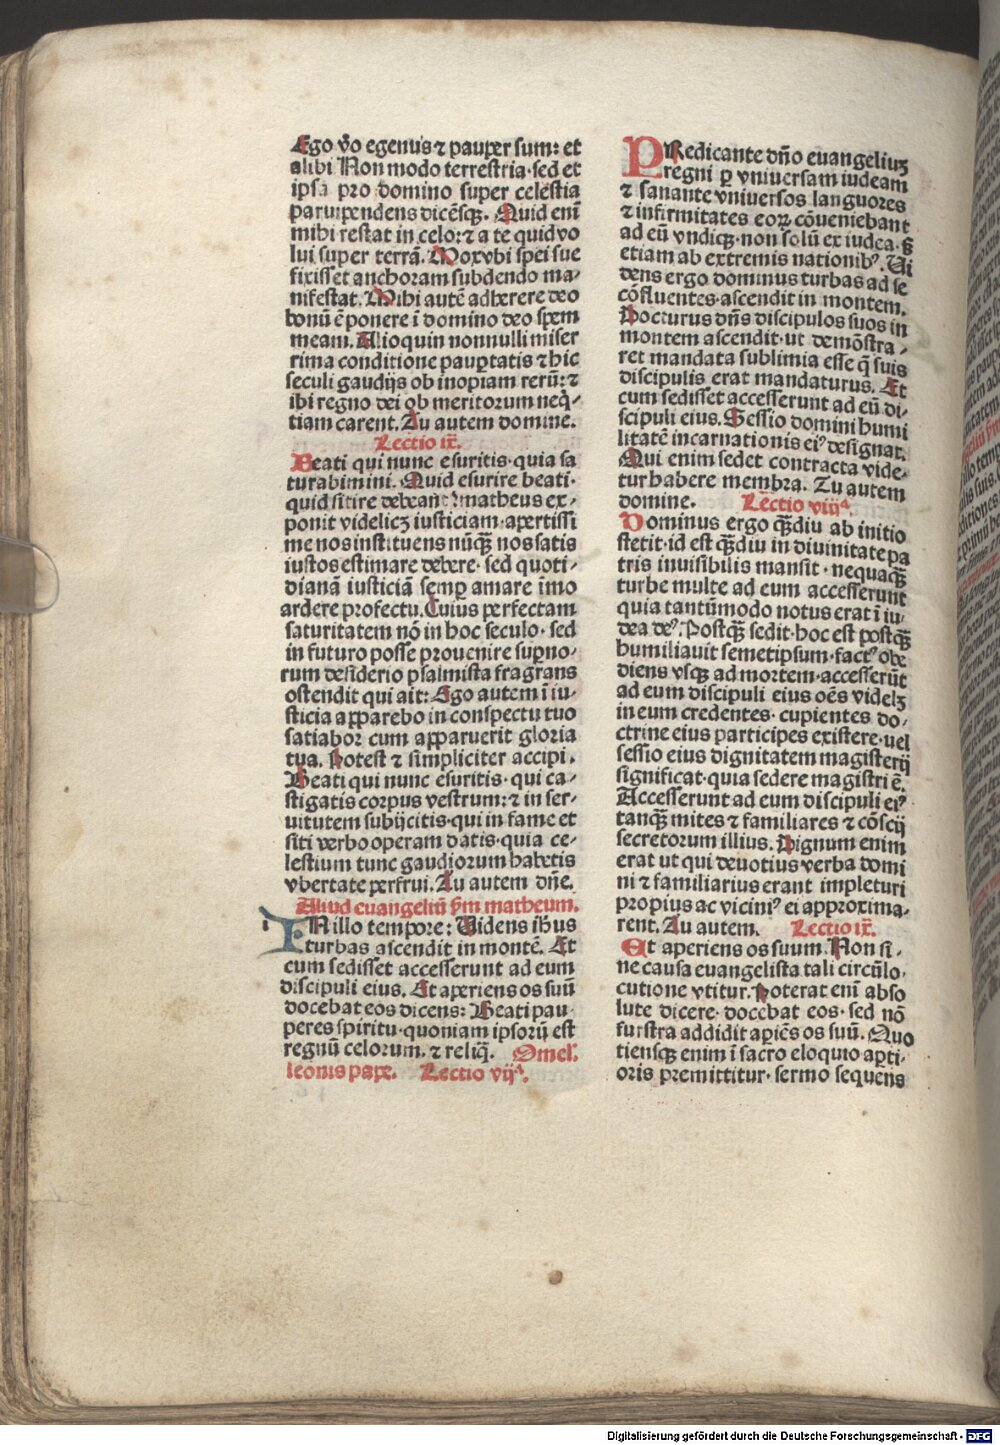 Ego v̄o egenus ⁊ pauper sum: et
alibi Non modo terrestria·sed et
ipsa pro domino super celestia
paruipendens dicēsqꝫ. Quid enī
mihi restat in celo:⁊ a te quid vo
lui super terrā. Mox vbi spei sue
fixisset anchoram subdendo ma-
nifestat. Mihi autē adherere deo
bonū ē ponere ī domino deo spem
meam. Alioquin nonnulli miser
rima conditione paupertatis ⁊ hic
seculi gaudijs ob inopiam rerū:⁊
ibi regno dei ob meritorum neq̄-
tiam carent. Tu autem domine.
Lectio ix.
Beati qui nunc esuritis·quia sa
turabimini. Quid esurire beati·
quid sitire debeant matheus ex-
ponit videlicꝫ iusticiam·apertissi
me nos instituens nūqꝫ nos satis
iustos estimare debere·sed quoti-
dianā iusticiā semꝑ amare īmo
ardere profectu. Cuius perfectam
saturitatem nō in hoc seculo·sed
in futuro posse prouenire suꝑno-
rum desiderio psalmista fragrans
ostendit qui ait: Ego autem ī iu-
sticia apparebo in conspectu tuo
satiabor cum apparuerit gloria
tua. Potest ⁊ simpliciter accipi.
Beati qui nunc esuritis·qui ca-
stigatis corpus vestrum:⁊ in ser-
uitutem subijcitis·qui in fame et
siti verbo operam datis·quia ce-
lestium tunc gaudiorum habetis
vbertate perfrui. Tu autem dn̄e.
Aliud euangeliū ẜm matheum.
IN illo tempore: Videns ih̄us
turbas ascendit in montē. Et
cum sedisset accesserunt ad eum
discipuli eius. Et aperiens os suū
docebat eos dicens: Beati pau
peres spiritu·quoniam ipsorū est
regnū celorum. ⁊ reliq̄. Omel.
leonis pape. Lectio vijᵃ.
PRedicante dn̄o euangeliuꝫ
regni ꝑ vniuersam iudeam
⁊ sanante vniuersos languores
⁊ infirmitates eoꝝ cōueniebant
ad eū vndiqꝫ·non solū ex iudea·ꝫ
etiam ab extremis nationibꝰ. Vi
dens ergo dominus turbas ad se
cōfluentes·ascendit in montem.
Docturus dn̄s discipulos suos in
montem ascendit·ut demōstra-
ret mandata sublimia esse q̄ suis
discipulis erat mandaturus. Et
cum sedisset accesserunt ad eū di-
scipuli eius. Sessio domini humi
litatē incarnationis eiꝰ designat.
Qui enim sedet contracta vide-
tur habere membra. Tu autem
domine. Lectio viijᵃ
Dominus ergo qꝫdiu ab initio
stetit·id est qꝫdiu in diuinitate pa
tris inuisibilis mansit·nequaqꝫ
turbe multe ad eum accesserunt
quia tantūmodo notus erat ī iu-
dea deꝰ. Postqꝫ sedit·hoc est postqꝫ
humiliauit semetipsum·factꝰ obe
diens vsqꝫ ad mortem·accesserūt
ad eum discipuli eius oēs videlꝫ
in eum credentes·cupientes do-
ctrine eius participes existere·uel
sessio eius dignitatem magisterij
significat·quia sedere magistri ē.
Accesserunt ad eum discipuli eiꝰ
tanqꝫ mites ⁊ familiares ⁊ cōscij
secretorum illius. Dignum enim
erat ut qui deuotius verba domi
ni ⁊ familiarius erant impleturi
propius ac viciniꝰ ei approxima-
rent. Tu autem. Lectio ix.
Et aperiens os suum. Non si-
ne causa euangelista tali circūlo-
cutione vtitur. Poterat enī abso
lute dicere·docebat eos·sed nō
furstra addidit apiēs os suū. Quo
tiensqꝫ enim ī sacro eloquio aꝑti-
oris premittitur·sermo sequens
Digitalisierung gefördert durch die Deutsche Forschungsgemeinschaft - DFG